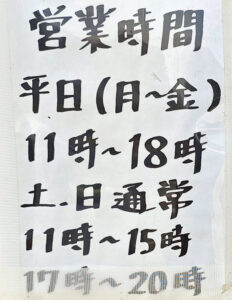 営業時間
平日(月〜金)
11時〜18時
土.日通常
11時〜15時
17時〜20時